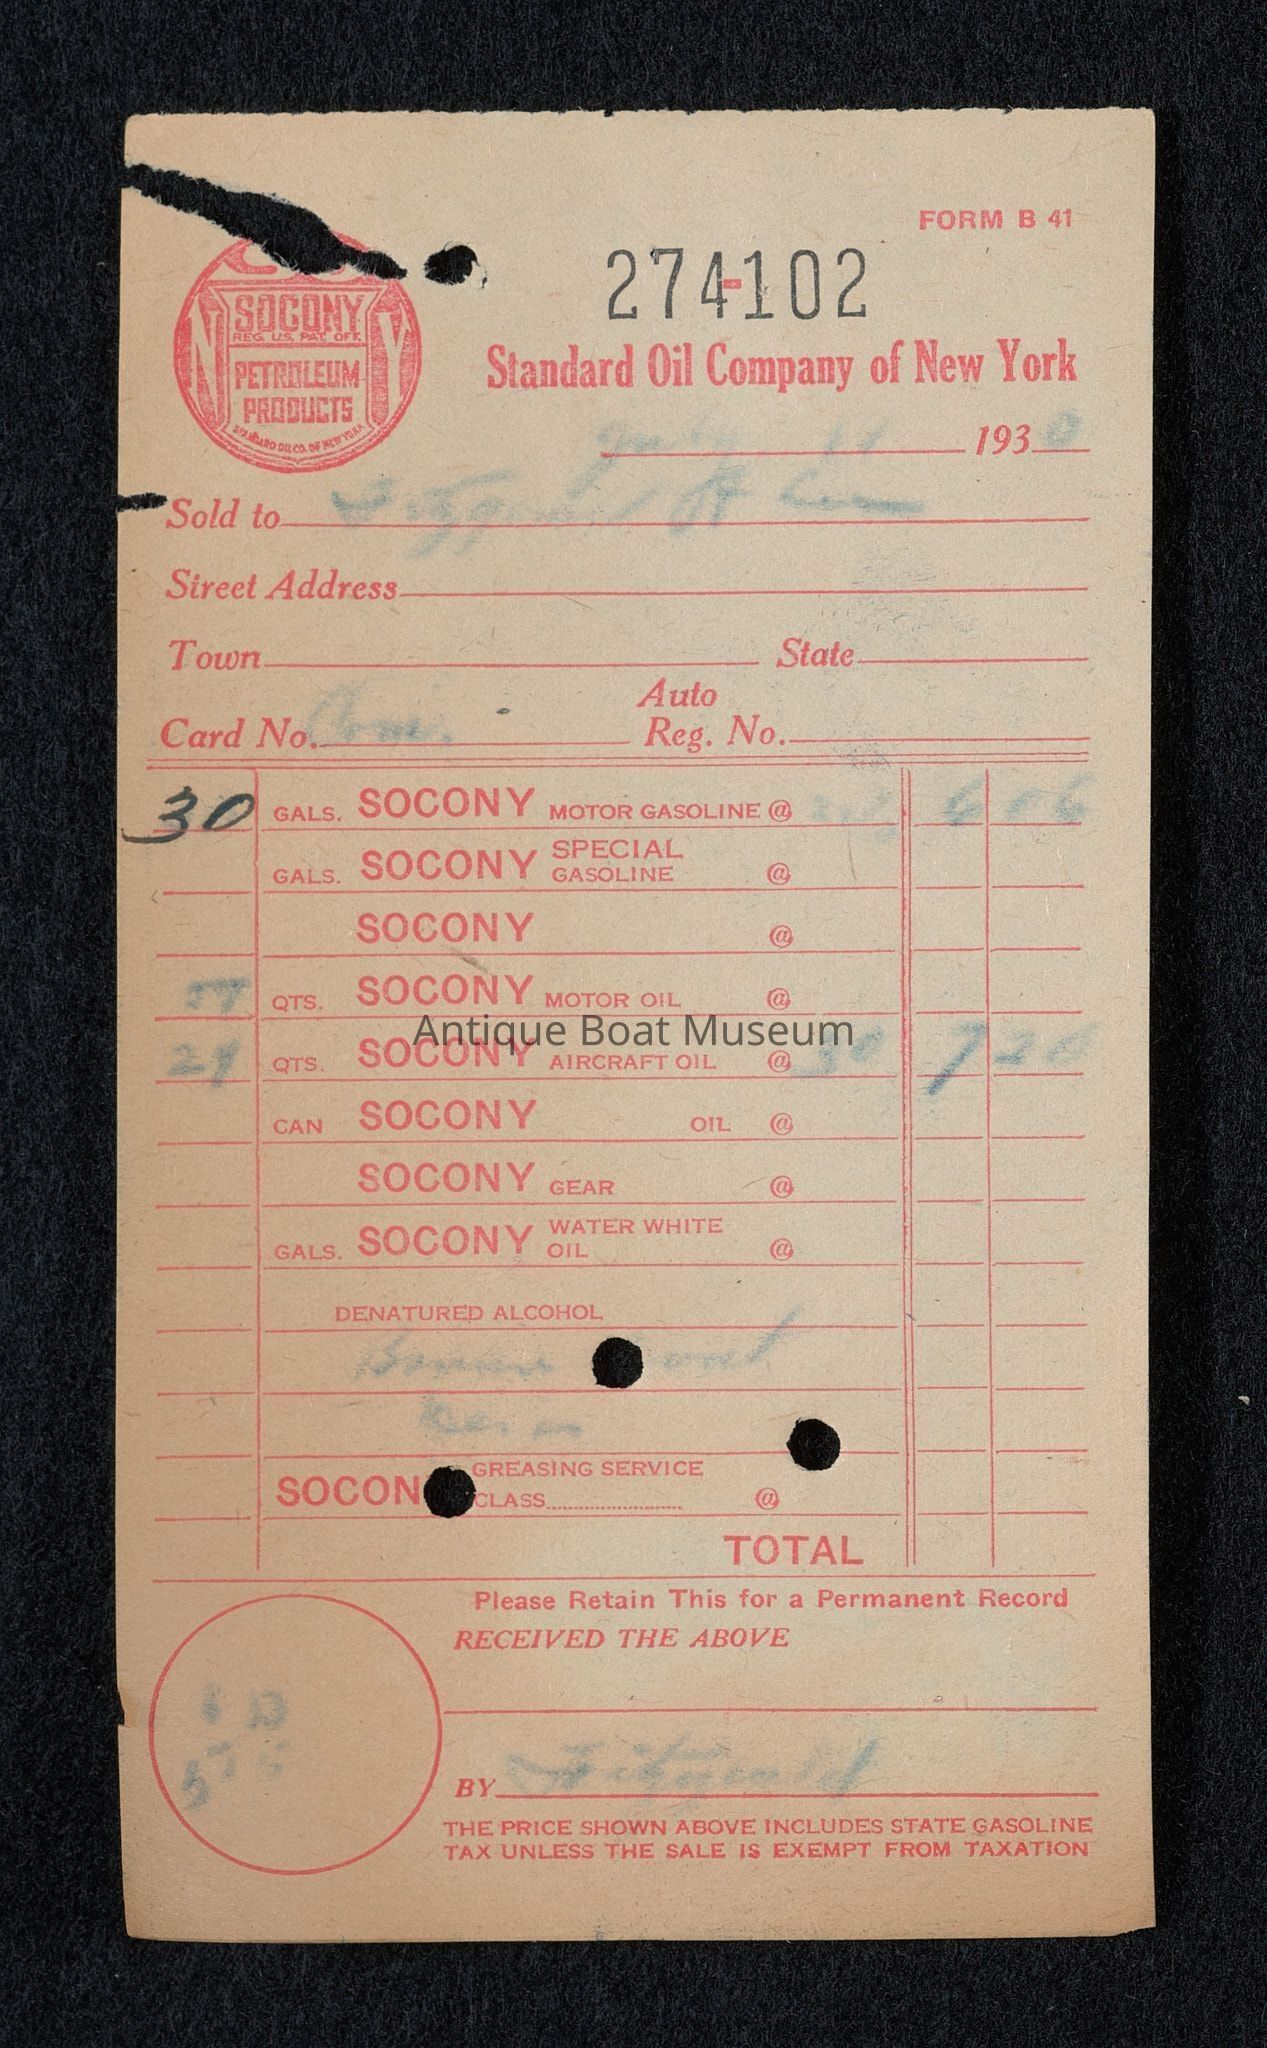 FORM B 41
274-102
SOCONY
REG. U.S. PAT. OFF.
PETROLEUM
PRODUCTS
STANDARD OIL CO. OF NEW YORK
Standard Oil Company of New York
11 1930
Sold to
Street Address
Town State
Auto
Card No. Com. Reg. No.
30 GALS. SOCONY MOTOR GASOLINE @ 6 06
GALS. SOCONY SPECIAL GASOLINE @
SOCONY @
QTS. SOCONY MOTOR OIL @
Antique Boat Museum
24 QTS. SOCONY AIRCRAFT OIL @ 30 7 20
CAN SOCONY OIL @
SOCONY GEAR @
GALS. SOCONY WATER WHITE OIL @
DENATURED ALCOHOL
SOCON GREASING SERVICE
CLASS @
TOTAL
Please Retain This for a Permanent Record
RECEIVED THE ABOVE
BY Fitzgerald
THE PRICE SHOWN ABOVE INCLUDES STATE GASOLINE
TAX UNLESS THE SALE IS EXEMPT FROM TAXATION